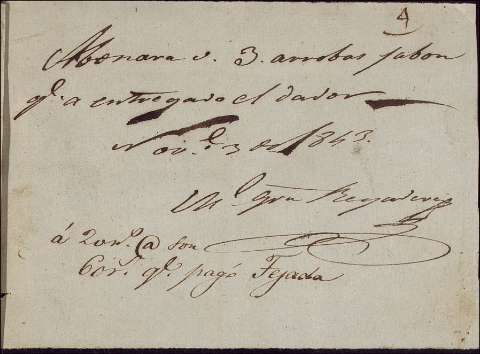 4
Abonara v. 3. arrobas jabon
q.e a entregado el dador
Nov.e 3 de 1843.
M.l
á 20 r.s @ son
60 r.s q.e pagó Tejada